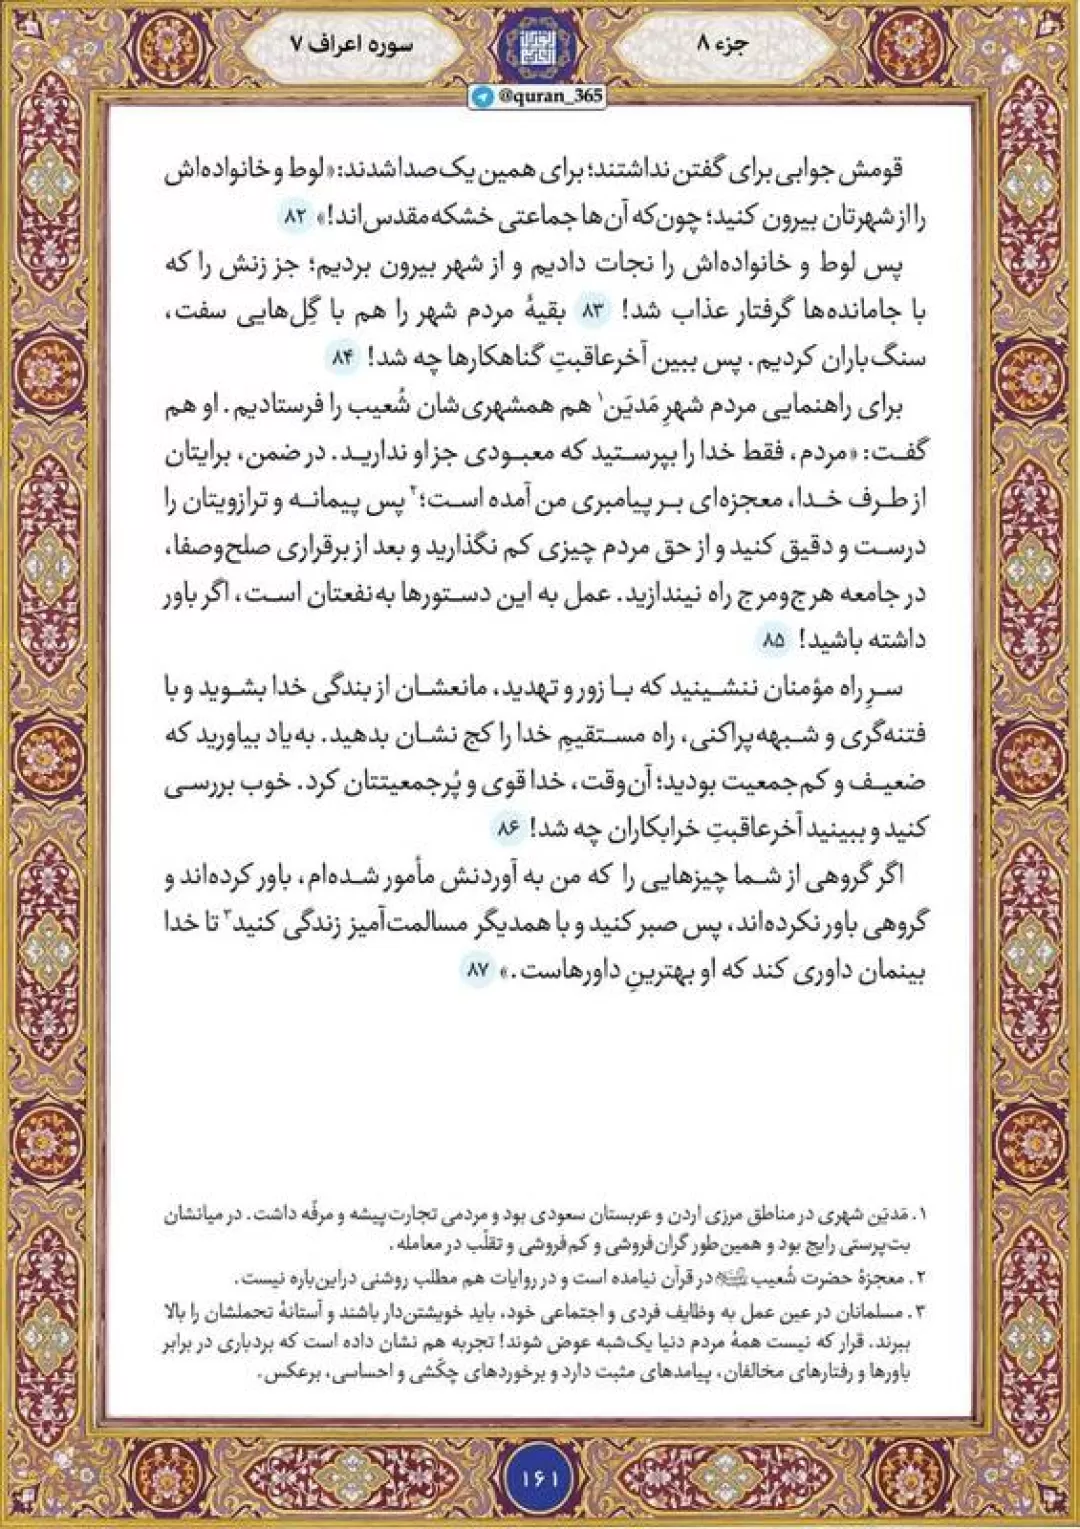 جزء ۸
سوره اعراف ۷
@quran_365
قومش جوابی برای گفتن نداشتند؛ برای همین یک‌صدا شدند: «لوط و خانواده‌اش
را از شهرتان بیرون کنید؛ چون‌که آن‌ها جماعتی خشکه‌مقدس‌اند!» ۸۲
پس لوط و خانواده‌اش را نجات دادیم و از شهر بیرون بردیم؛ جز زنش را که
با جامانده‌ها گرفتار عذاب شد! ۸۳ بقیهٔ مردم شهر را هم با گِل‌هایی سفت،
سنگ‌باران کردیم. پس ببین آخرعاقبتِ گناهکارها چه شد! ۸۴
برای راهنمایی مردم شهرِ مَدیَن۱ هم همشهری‌شان شُعیب را فرستادیم. او هم
گفت: «مردم، فقط خدا را بپرستید که معبودی جز او ندارید. در ضمن، برایتان
از طرف خدا، معجزه‌ای بر پیامبری من آمده است؛۲ پس پیمانه و ترازویتان را
درست و دقیق کنید و از حق مردم چیزی کم نگذارید و بعد از برقراری صلح‌وصفا،
در جامعه هرج‌ومرج راه نیندازید. عمل به این دستورها به‌نفعتان است، اگر باور
داشته باشید! ۸۵
سرِ راه مؤمنان ننشینید که با زور و تهدید، مانعشان از بندگی خدا بشوید و با
فتنه‌گری و شبهه‌پراکنی، راه مستقیمِ خدا را کج نشان بدهید. به‌یاد بیاورید که
ضعیف و کم‌جمعیت بودید؛ آن‌وقت، خدا قوی و پُرجمعیتتان کرد. خوب بررسی
کنید و ببینید آخرعاقبتِ خرابکاران چه شد! ۸۶
اگر گروهی از شما چیزهایی را که من به آوردنش مأمور شده‌ام، باور کرده‌اند و
گروهی باور نکرده‌اند، پس صبر کنید و با همدیگر مسالمت‌آمیز زندگی کنید۳ تا خدا
بینمان داوری کند که او بهترینِ داورهاست.» ۸۷
۱. مَدیَن شهری در مناطق مرزی اردن و عربستان سعودی بود و مردمی تجارت‌پیشه و مرفّه داشت. در میانشان
بت‌پرستی رایج بود و همین‌طور گران‌فروشی و کم‌فروشی و تقلّب در معامله.
۲. معجزهٔ حضرت شُعیب در قرآن نیامده است و در روایات هم مطلب روشنی دراین‌باره نیست.
۳. مسلمانان در عین عمل به وظایف فردی و اجتماعی خود، باید خویشتن‌دار باشند و آستانهٔ تحملشان را بالا
ببرند. قرار که نیست همهٔ مردم دنیا یک‌شبه عوض شوند! تجربه هم نشان داده است که بردباری در برابر
باورها و رفتارهای مخالفان، پیامدهای مثبت دارد و برخوردهای چکّشی و احساسی، برعکس.
۱۶۱